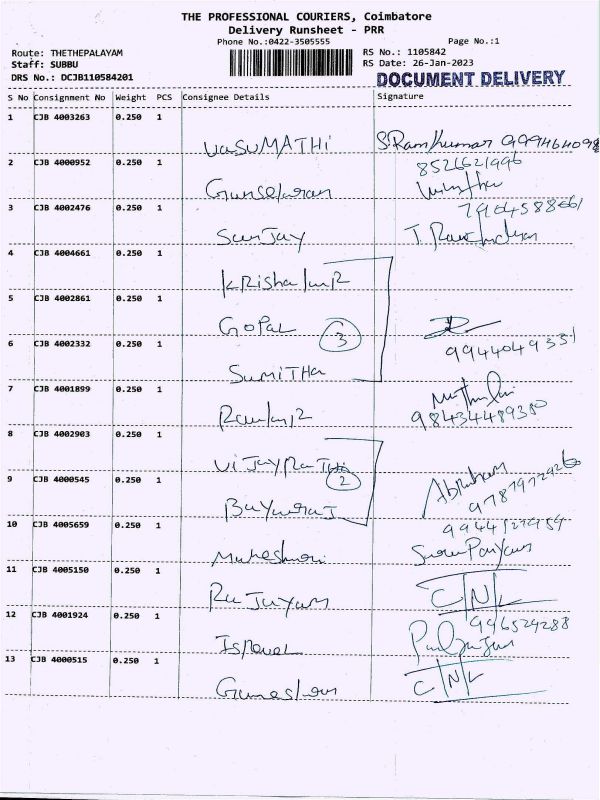 THE PROFESSIONAL COURIERS, Coimbatore
Delivery Runsheet - PRR
Phone No.:0422-3505555 Page No.:1
Route: THETHEPALAYAM RS No.: 1105842
Staff: SUBBU RS Date: 26-Jan-2023
DRS No.: DCJB110584201 DOCUMENT DELIVERY
S No Consignment No Weight PCS Consignee Details Signature
1 CJB 4003263 0.250 1
VASUMATHI S.RamKumar
2 CJB 4000952 0.250 1 8526621996
Gunsekaran
3 CJB 4002476 0.250 1
Sanjay
4 CJB 4004661 0.250 1
5 CJB 4002861 0.250 1
GOPAL 3
6 CJB 4002332 0.250 1 9944049331
SUMITHA
7 CJB 4001899 0.250 1
98434489380
8 CJB 4002903 0.250 1
2
9 CJB 4000545 0.250 1
Abraham
10 CJB 4005659 0.250 1
Maheshwari
11 CJB 4005150 0.250 1
C/N/L
12 CJB 4001924 0.250 1 996529288
13 CJB 4000515 0.250 1
C/N/L